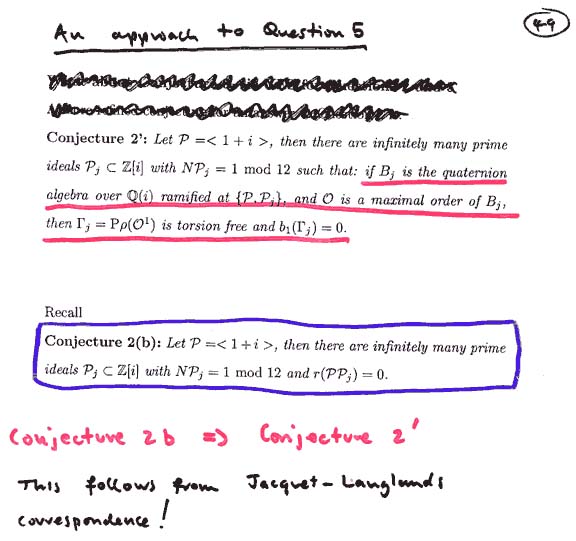 An approach to Question 5
49
Conjecture 2': Let P =< 1 + i >, then there are infinitely many prime
ideals P_j ⊂ Z[i] with NP_j = 1 mod 12 such that: if B_j is the quaternion
algebra over Q(i) ramified at {P, P_j}, and O is a maximal order of B_j,
then Γ_j = Pρ(O^1) is torsion free and b_1(Γ_j) = 0.
Recall
Conjecture 2(b): Let P =< 1 + i >, then there are infinitely many prime
ideals P_j ⊂ Z[i] with NP_j = 1 mod 12 and r(PP_j) = 0.
Conjecture 2b => Conjecture 2'
This follows from Jacquet-Langlands
correspondence!